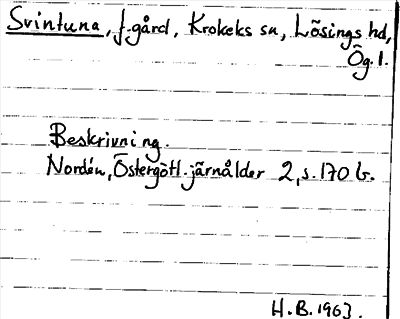 Svintuna, f.gård, Krokeks sn, Lösings hd,
Ög. l.
Beskrivning.
Nordén, Östergötl. järnålder 2, s. 170 b.
H.B. 1963.